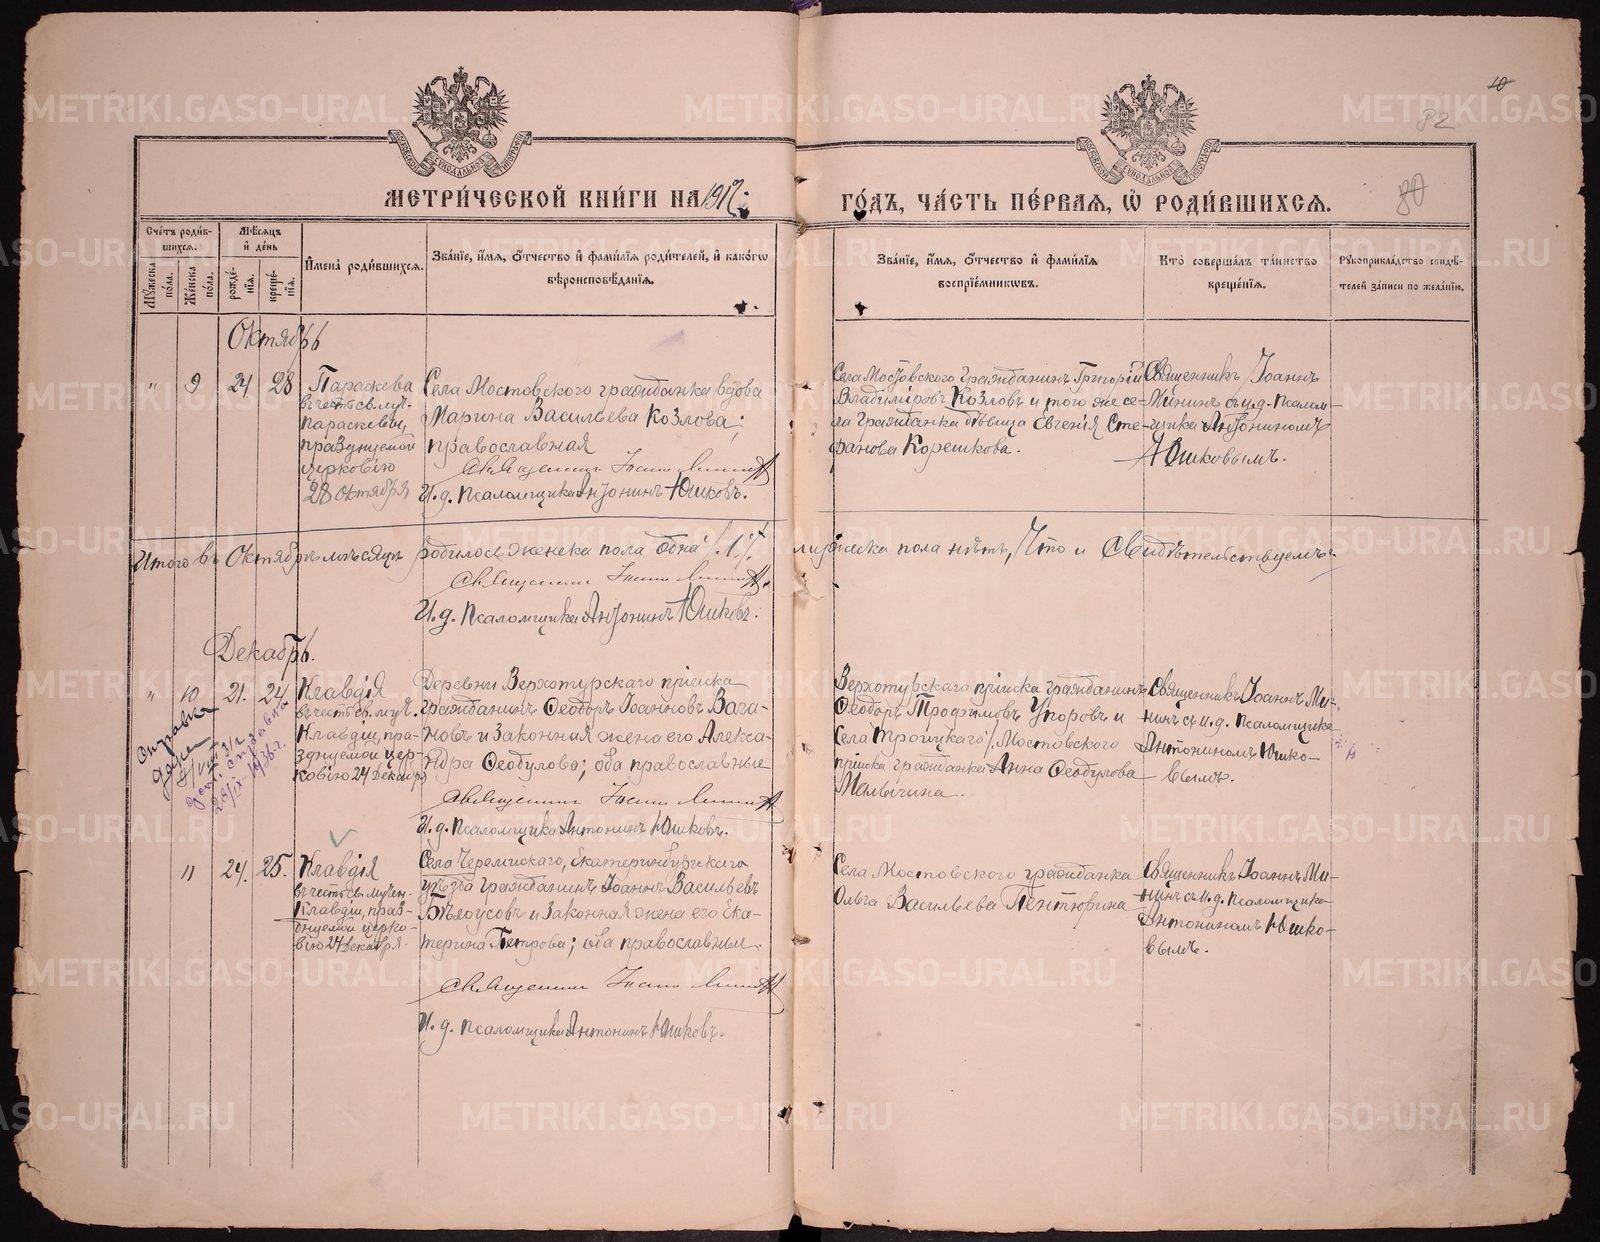 10
82
80
МОСКОВСКОЙ СѴНОДАЛЬНОЙ ТИПОГРАФІИ
МОСКОВСКОЙ СѴНОДАЛЬНОЙ ТИПОГРАФІИ
МЕТРИ́ЧЕСКОЙ КНИ́ГИ НА 1917
ГО́ДЪ, ЧА́СТЬ ПЕ́РВАЯ, Ѡ҆ РОДИ́ВШИХСЯ.
Сче́тъ роди́в-
шихся.
Мꙋ́жеска по́ла.
Же́нска по́ла.
Мѣ́сяцъ
и҆ де́нь
рожде́-
нїя.
креще́-
нїя.
И҆мена̀ роди́вшихся.
Зва́нїе, и҆́мя, ѻ҆́тчество и҆ фами́лїя роди́телей, и҆ како́гѡ
вѣроисповѣ́данїя.
Зва́нїе, и҆́мя, ѻ҆́тчество и҆ фами́лїя
воспрїе́мникѡвъ.
Кто̀ соверша́лъ та́инство
креще́нїя.
Рꙋкоприкла́дство свидѣ́-
телей за́писи по жела́нїю.
Октябрь
" 9 24 28
Параскева
въ честь св. муч.
Параскевы,
празднуемой
церковію
28 Октября
Села Мостовского гражданка вдова
Марина Васильева Козлова;
православная
Священникъ Іоаннъ Мининъ
И. д. Псаломщика Антонинъ Юшковъ.
Села Мостовского гражданинъ Григорій
Владиміровъ Козловъ и того же се-
ла гражданка дѣвица Евгенія Сте-
фанова Корешкова.
Священникъ Іоаннъ
Мининъ съ и. д. Псалом-
щика Антониномъ
Юшковымъ.
Итого въ Октябрѣ мѣсяцѣ родилось женска пола одна /. 1 /. мужеска пола нѣтъ, Что и Свидѣтельствуемъ:
Священникъ Іоаннъ Мининъ
И. д. Псаломщика Антонинъ Юшковъ.
Декабрь.
" 10 21. 24
Клавдія
въ честь св. муч.
Клавдіи, пра-
зднуемой цер-
ковію 24 Декабр
Деревни Верхотурскаго пріиска
гражданинъ Ѳеодоръ Іоанновъ Вага-
новъ и законная жена его Алекса-
ндра Ѳеодулова; оба православные
Священникъ Іоаннъ Мининъ
И. д. Псаломщика Антонинъ Юшковъ.
Верхотурскаго пріиска гражданинъ
Ѳеодоръ Трофимовъ Упоровъ и
Села Троицкаго /, Мостовского
пріиска гражданка Анна Ѳеодулова
Малыгина.
Священникъ Іоаннъ Ми-
нинъ съ и. д. Псаломщика
Антониномъ Юшко-
вымъ.
Справка
дана
11 24. 25.
Клавдія
въ честь св. мучен.
Клавдіи, праз-
днуемой церко-
вію 24 Декабря.
Села Черемискаго, Екатеринбургскаго
уѣзда гражданинъ Іоаннъ Васильевъ
Бѣлоусовъ и законная жена его Ека-
терина Петрова; оба православные.
Священникъ Іоаннъ Мининъ
И. д. Псаломщика Антонинъ Юшковъ.
Села Мостовского гражданка
Ольга Васильева Пентюрина
Священникъ Іоаннъ Ми-
нинъ съ и. д. Псаломщика
Антониномъ Юшко-
вымъ.
METRIKI.GASO-URAL.RU